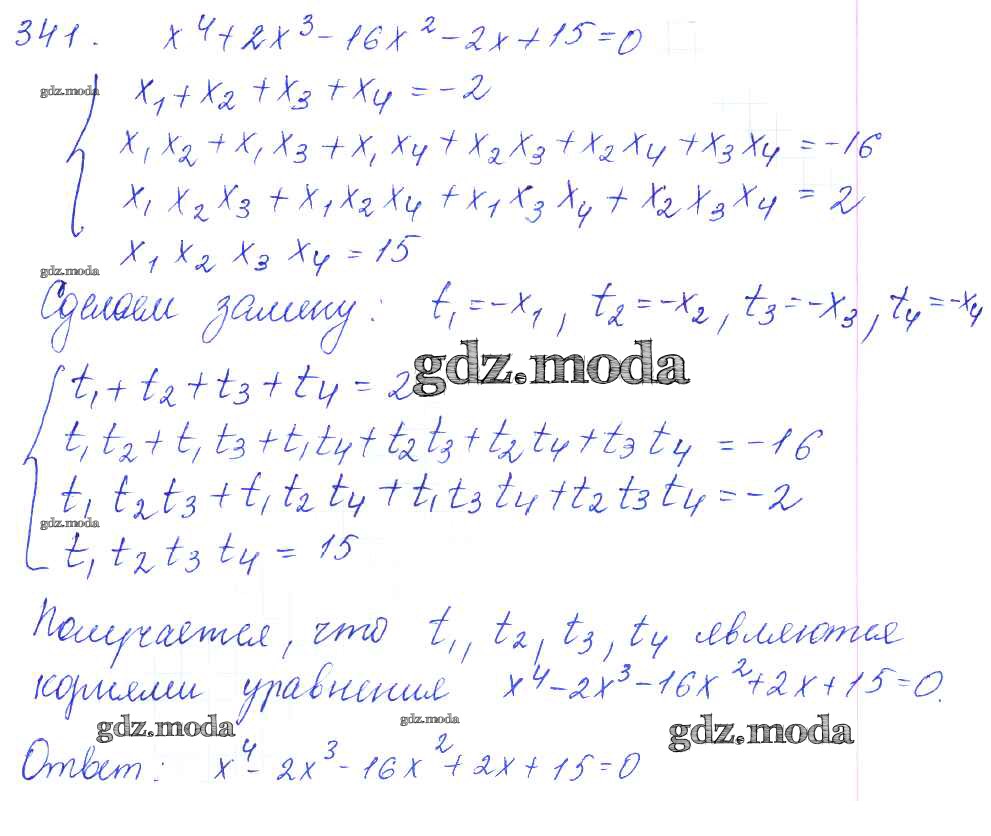 341. x⁴+2x³-16x²-2x+15=0
gdz.moda
x₁+x₂+x₃+x₄=-2
x₁x₂+x₁x₃+x₁x₄+x₂x₃+x₂x₄+x₃x₄=-16
x₁x₂x₃+x₁x₂x₄+x₁x₃x₄+x₂x₃x₄=2
x₁x₂x₃x₄=15
gdz.moda
Сделаем замену: t₁=-x₁, t₂=-x₂, t₃=-x₃, t₄=-x₄
gdz.moda
t₁+t₂+t₃+t₄=2
t₁t₂+t₁t₃+t₁t₄+t₂t₃+t₂t₄+t₃t₄=-16
t₁t₂t₃+t₁t₂t₄+t₁t₃t₄+t₂t₃t₄=-2
gdz.moda
t₁t₂t₃t₄=15
Получается, что t₁, t₂, t₃, t₄ являются
корнями уравнения x⁴-2x³-16x²+2x+15=0.
gdz.moda gdz.moda gdz.moda
Ответ: x⁴-2x³-16x²+2x+15=0